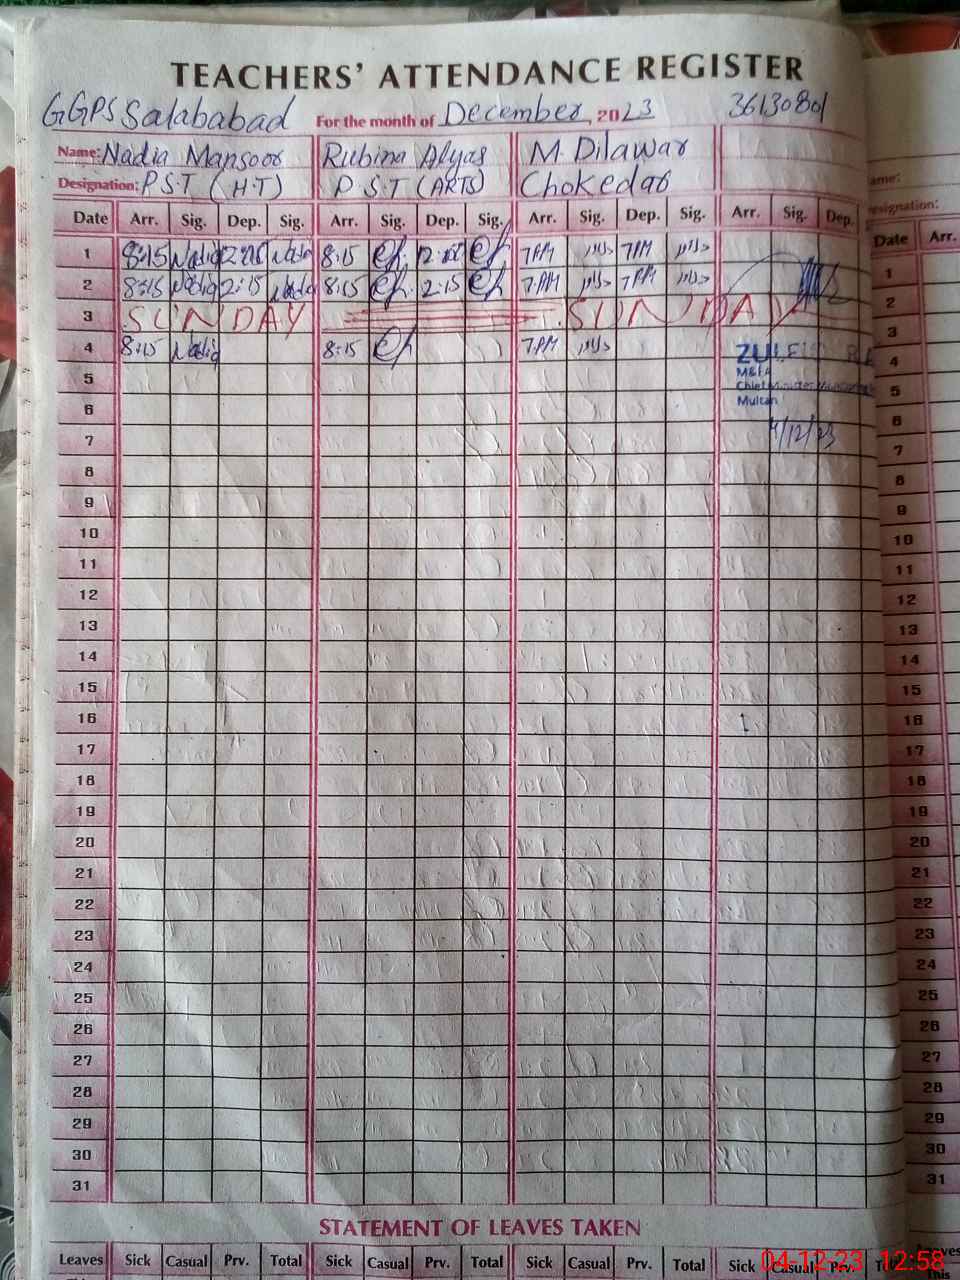 TEACHERS' ATTENDANCE REGISTER
GGPS Salababad For the month of December, 2023 36130801
Name: Nadia Mansoor Rubina Alyas M. Dilawar
Designation: P.S.T (H.T) P.S.T (ARTS) Chokedar
Date Arr. Sig. Dep. Sig. Arr. Sig. Dep. Sig. Arr. Sig. Dep. Sig. Arr. Sig. Dep.
1 8:15 Nadia Nadia 8:15 7PM 7PM
2 8:15 Nadia 2:15 Nadia 8:15 2:15 7PM 7PM
3 SUNDAY SUNDAY
4 8:15 Nadia 8:15 7PM
5
6
7
8
9
10
11
12
13
14
15
16
17
18
19
20
21
22
23
24
25
26
27
28
29
30
31
M&EA
Chief Minister
Multan
4/12/23
STATEMENT OF LEAVES TAKEN
Leaves Sick Casual Prv. Total Sick Casual Prv. Total Sick Casual Prv. Total Sick Casual Prv.
ame:
esignation:
Date Arr.
1
2
3
4
5
6
7
8
9
10
11
12
13
14
15
16
17
18
19
20
21
22
23
24
25
26
27
28
29
30
31
04-12-23 12:58